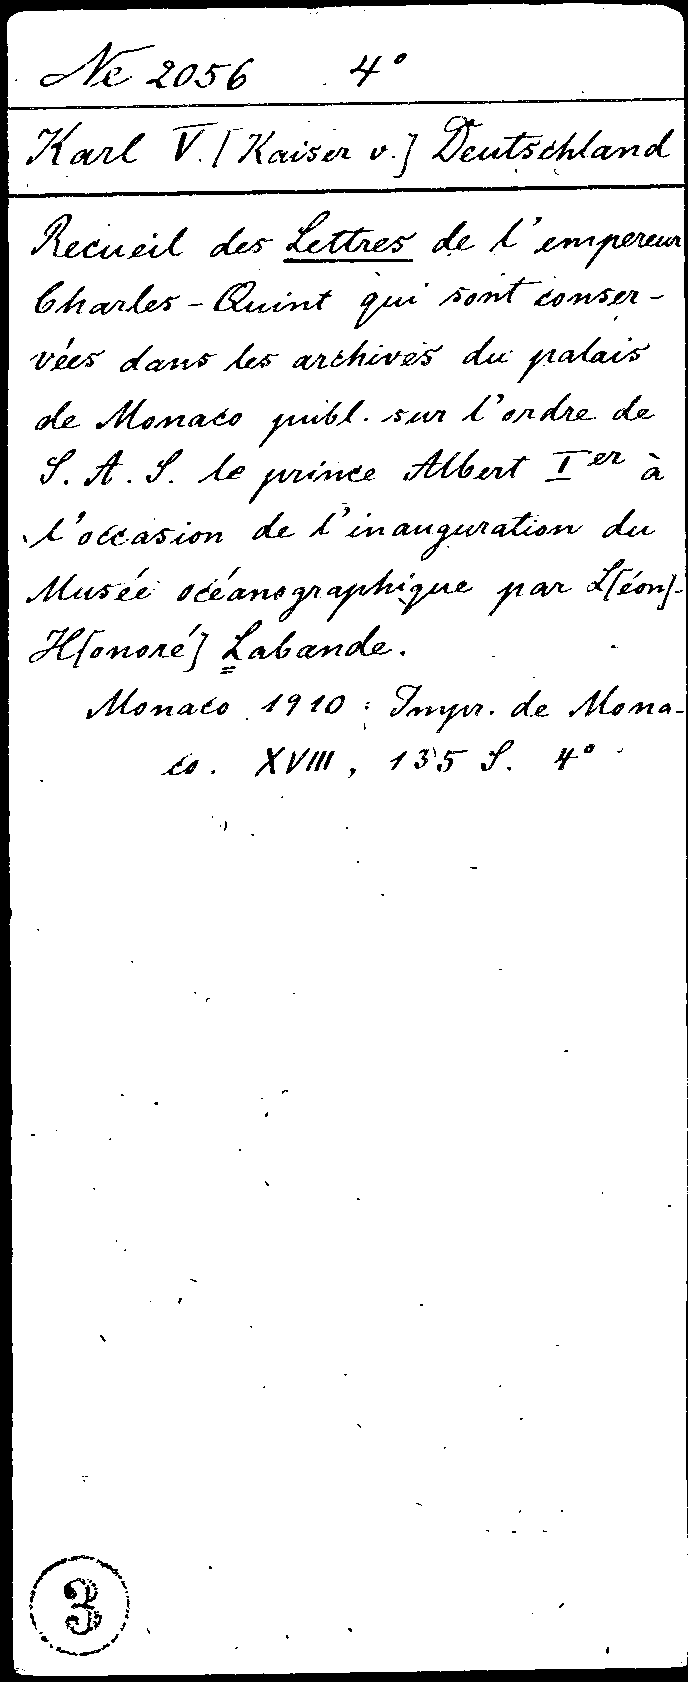 Ne 2056 4°
Karl V. [Kaiser v.] Deutschland
Recueil des Lettres de l'empereur
Charles-Quint qui sont conser-
vées dans les archives du palais
de Monaco publ. sur l'ordre de
S. A. S. le prince Albert Ier à
l'occasion de l'inauguration du
Musée océanographique par L[éon]-
H[onoré] Labande.
Monaco 1910: Impr. de Mona-
co. XVIII, 135 S. 4°
3